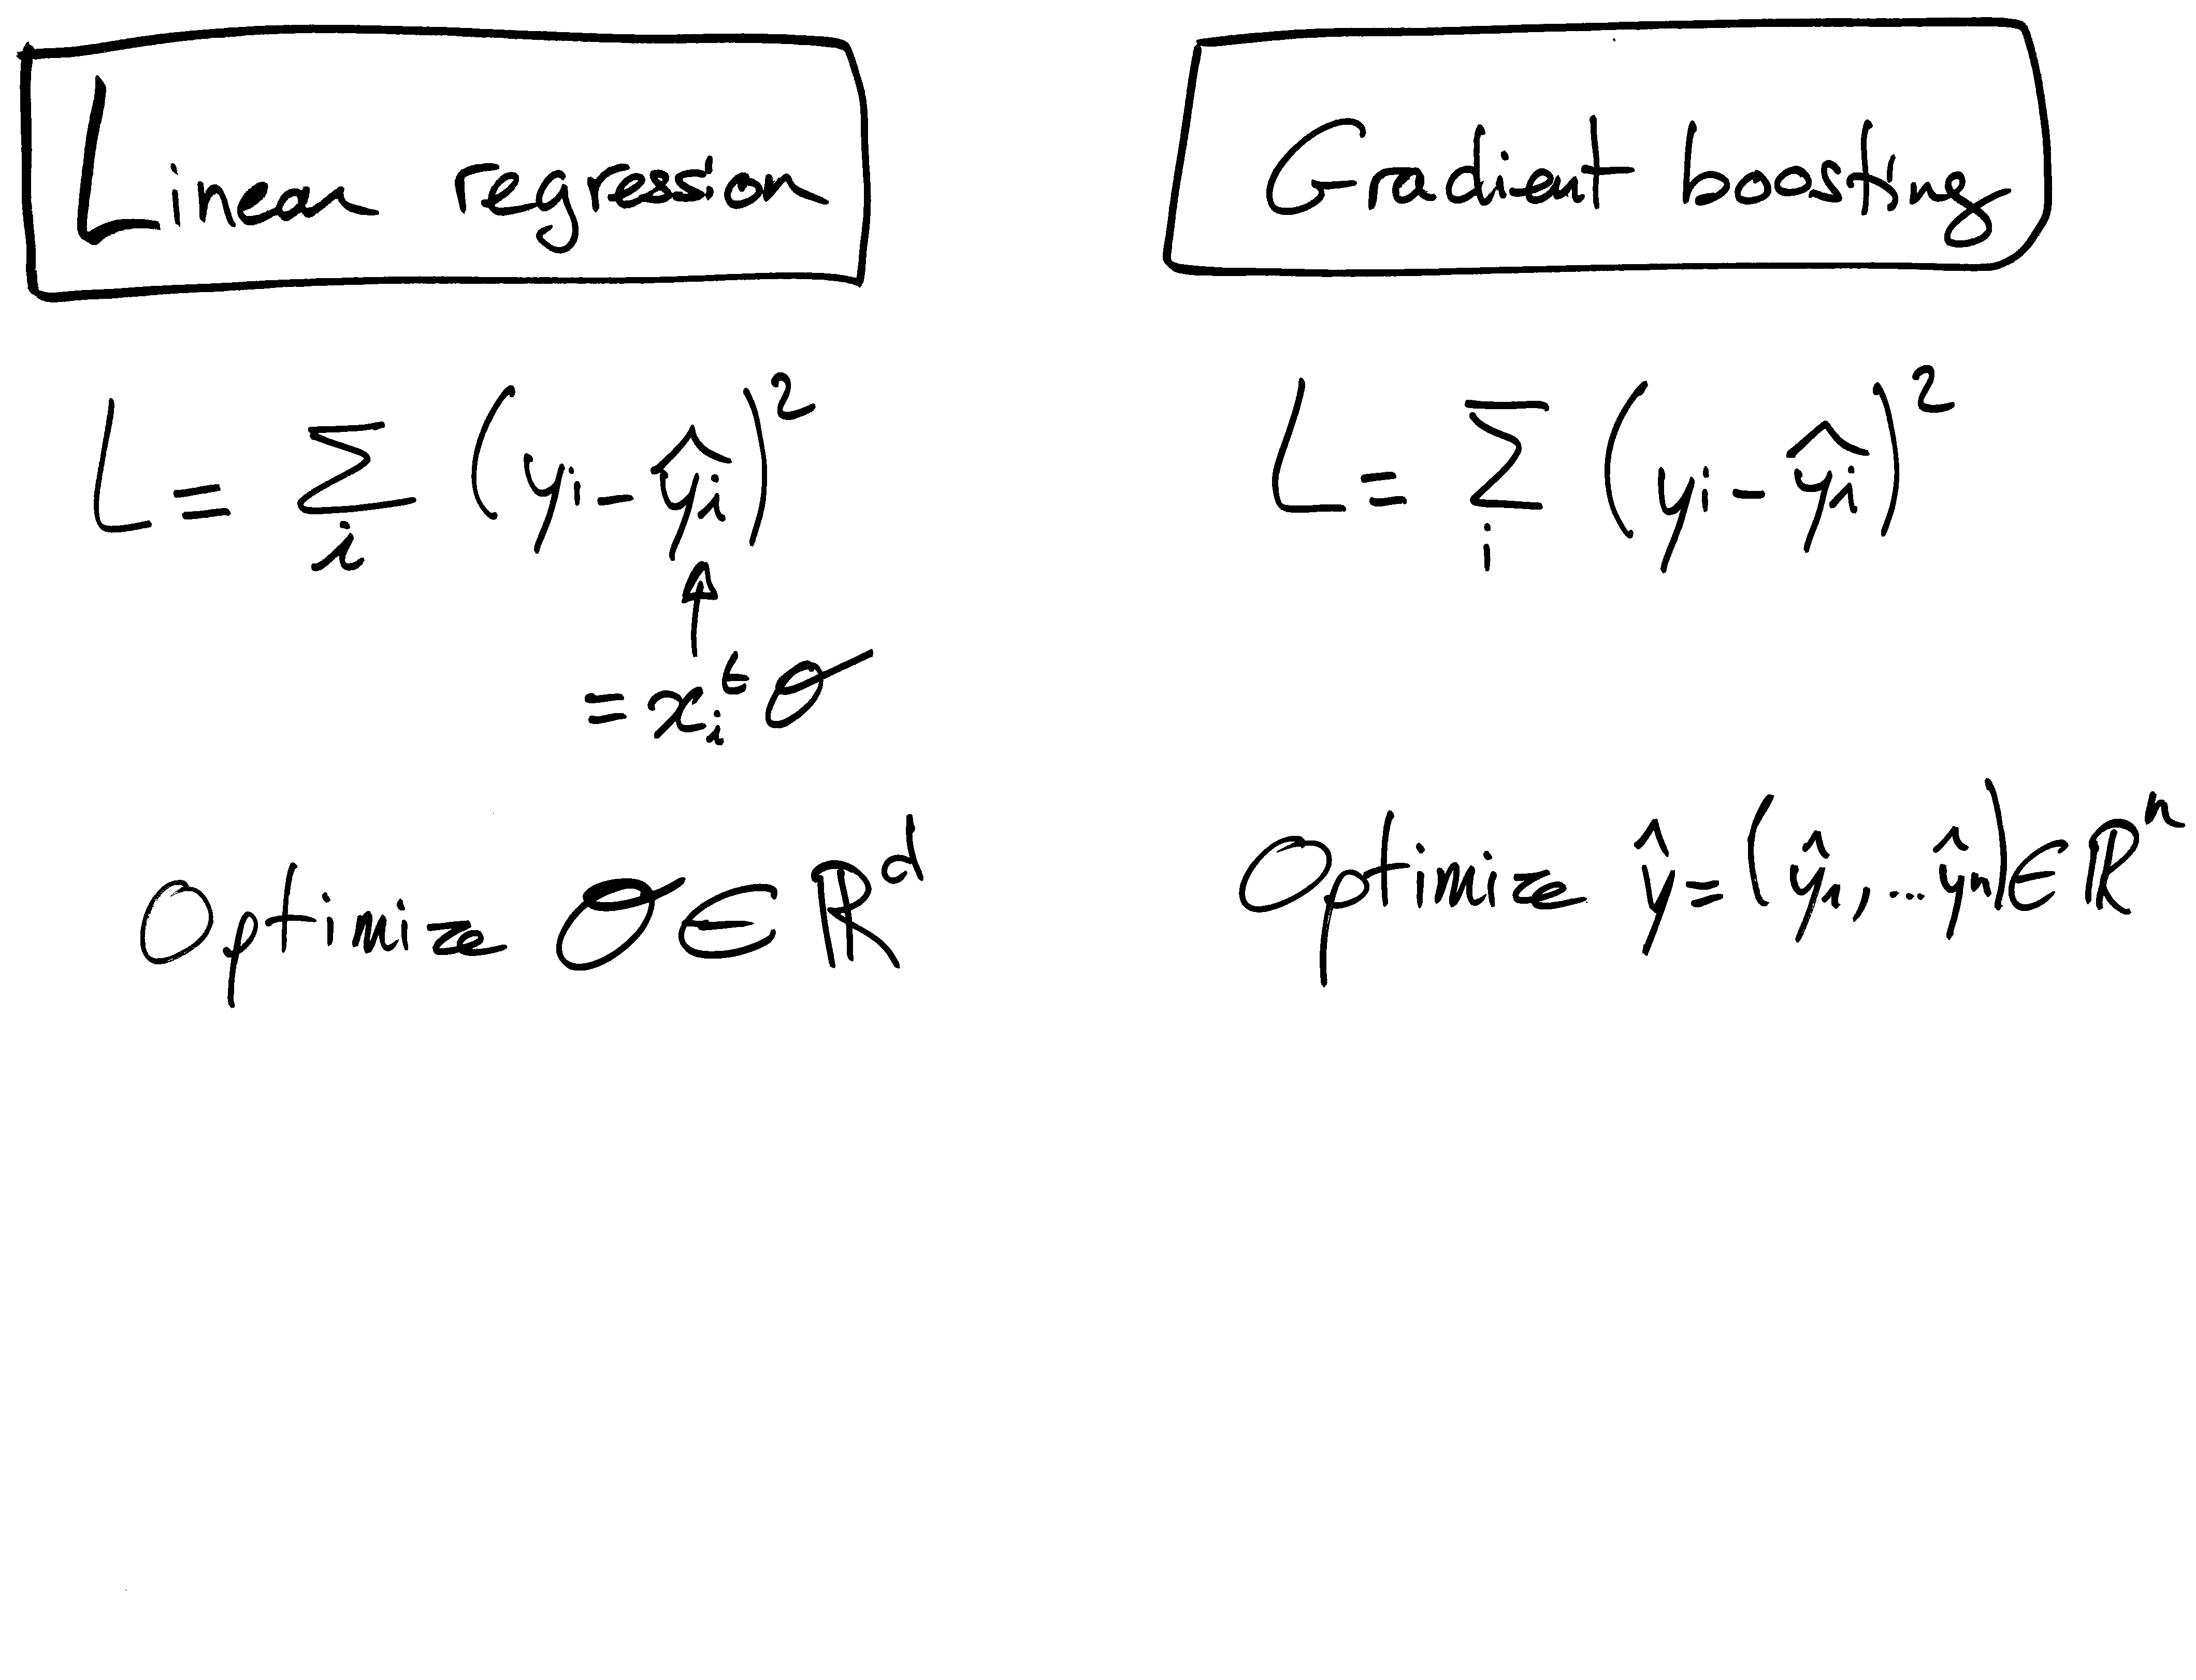 Linear regression
L = ∑_i (y_i - ŷ_i)²
= x_i^t θ
Optimize θ ∈ ℝ^d
Gradient boosting
L = ∑_i (y_i - ŷ_i)²
Optimize ŷ = (ŷ_1, ... ŷ_n) ∈ ℝ^n